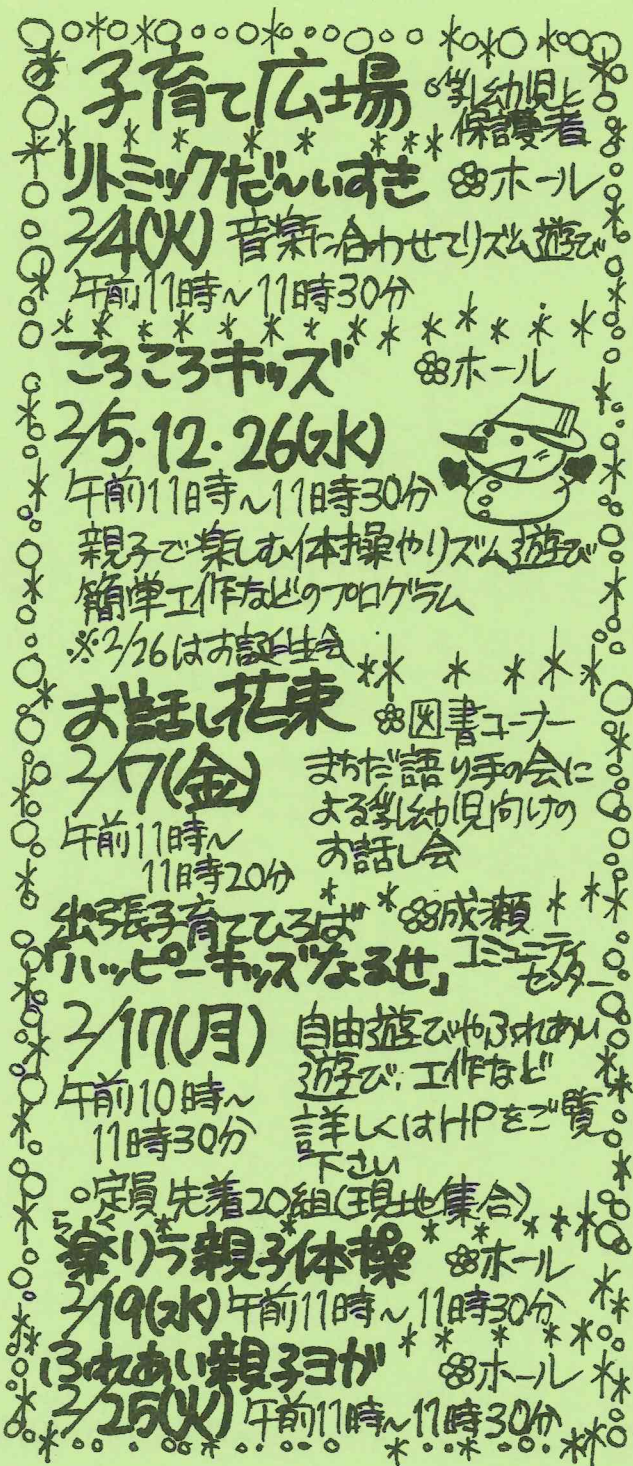 子育て広場 ○乳幼児と
保護者
リトミックだ〜いすき ホール
2/4(火) 音楽に合わせてリズム遊び
午前11時〜11時30分
ころころキッズ ホール
2/5・12・26(水)
午前11時〜11時30分
親子で楽しむ体操やリズム遊び
簡単工作などのプログラム
※2/26はお誕生会
お話し花束 図書コーナー
2/7(金) まちだ語り手の会に
よる乳幼児向けの
お話し会
午前11時〜
11時20分
出張子育てひろば 成瀬
コミュニティ
センター
「ハッピーキッズなるせ」
2/17(月) 自由遊びやふれあい
遊び、工作など
午前10時〜
11時30分
詳しくはHPをご覧
下さい
○定員 先着20組(現地集合)
らくらく
楽りら親子体操 ホール
2/19(水) 午前11時〜11時30分
ふれあい親子ヨガ ホール
2/25(火) 午前11時〜11時30分